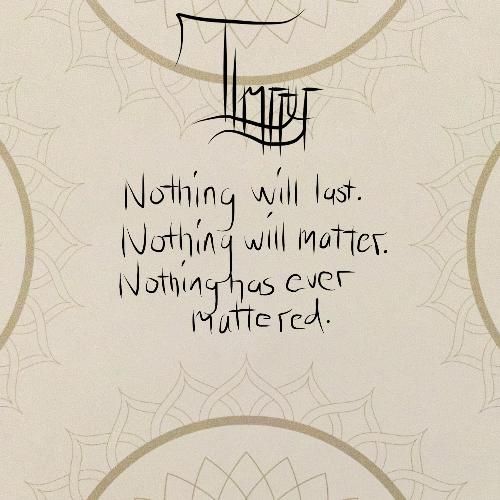 Nothing will last.
Nothing will matter.
Nothing has ever
mattered.